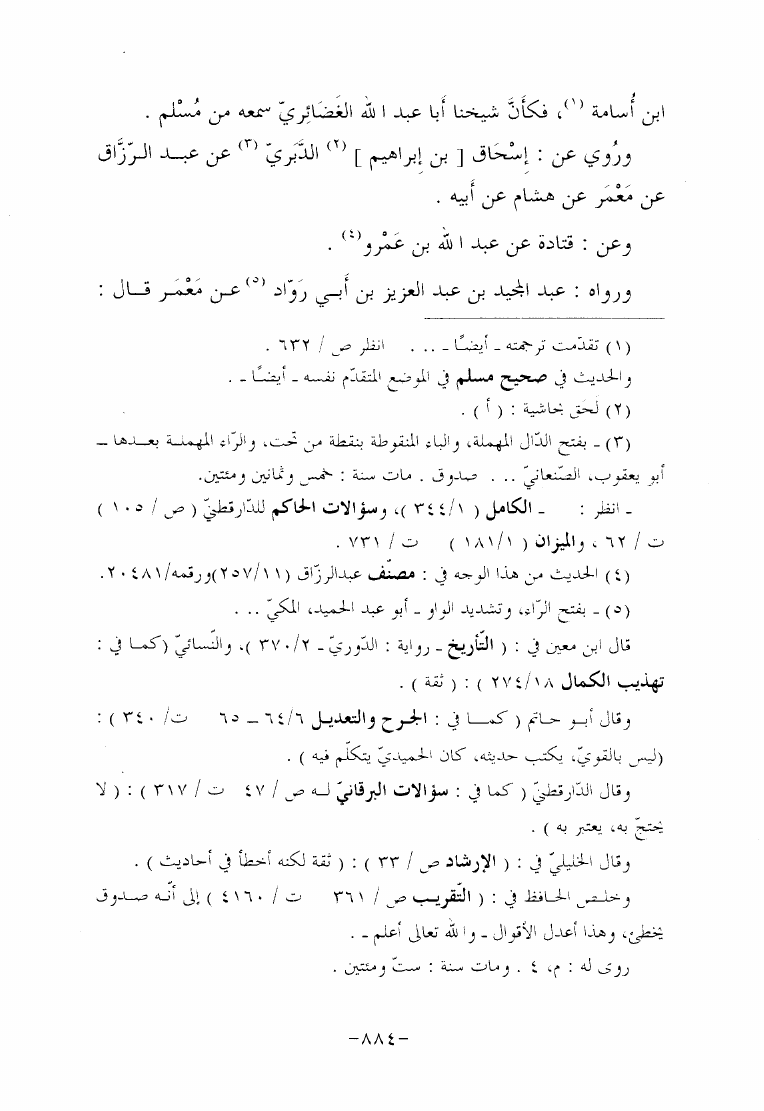 ابن أُسامة (١)، فكأنَّ شيخنا أبا عبد الله الغَضَائِريّ سمعه من مُسْلم .
ورُوي عن : إسْحَاق [ بن إبراهيم ] (٢) الدَّبَريّ (٣) عن عبـد الـرَّزَّاق
عن مَعْمَر عن هشام عن أبيه .
وعن : قتادة عن عبد الله بن عَمْرو(٤) .
ورواه : عبد المجيد بن عبد العزيز بن أبـي رَوَّاد (٥) عـن مَعْمَـر قـال :
(١) تقدّمت ترجمته ـ أيضًا ـ ... انظر ص / ٦٣٢ .
والحديث في صحيح مسلم في الموضع المتقدّم نفسه ـ أيضًا ـ .
(٢) لَحَق بحاشية : ( أ ) .
(٣) ـ بفتح الدّال المهملة، والباء المنقوطة بنقطة من تحت، والرّاء المهملـة بعـدها ـ
أبو يعقوب، الصّنعانيّ ... صدوق . مات سنة : خمس وثمانين ومئتين.
ـ انظر : ـ الكامل ( ٣٤٤/١ )، وسؤالات الحاكم للدّارقطنيّ ( ص / ١٠٥ )
ت / ٦٢ ، والميزان ( ١٨١/١ ) ت / ٧٣١ .
(٤) الحديث من هذا الوجه في : مصنّف عبدالرزّاق (٢٥٧/١١)ورقمه/٢٠٤٨١.
(٥) ـ بفتح الرّاء، وتشديد الواو ـ أبو عبد الحميد، المكيّ ...
قال ابن معين في : ( التّأريخ ـ رواية : الدّوريّ ـ ٣٧٠/٢ )، والنّسائيّ (كما في :
تهذيب الكمال ٢٧٤/١٨ ) : ( ثقة ) .
وقال أبـو حـاتم ( كمـا في : الجرح والتعديـل ٦٤/٦ ـ ٦٥ ت/ ٣٤٠ ) :
(ليس بالقويّ، يكتب حديثه، كان الحميديّ يتكلّم فيه ) .
وقال الدّارقطنيّ ( كما في : سؤالات البرقانيّ لـه ص / ٤٧ ت / ٣١٧ ) : ( لا
يحتجّ به، يعتبر به ) .
وقال الخليليّ في : ( الإرشاد ص / ٣٣ ) : ( ثقة لكنه أخطأ في أحاديث ) .
وخلـص الحـافظ في : ( التّقريب ص / ٣٦١ ت / ٤١٦٠ ) إلى أنّـه صـدوق
يخطئ، وهذا أعدل الأقوال ـ والله تعالى أعلم ـ .
روى له : م، ٤ . ومات سنة : ستّ ومئتين .
-٨٨٤-